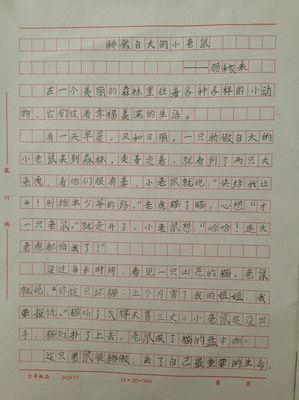 骄傲自大的小老鼠
在一个美丽的森林里住着各种各样的小动
物,它们过着幸福美满的生活。
有一天早晨,风和日丽。一只骄傲自大的
小老鼠来到森林,走着走着,就看到了两只大
老虎,看他们很有善,小老鼠就说:“快给我让
开!别挡本少爷的路。”老虎瞄了瞄,心想:“才
一只老鼠。”就走开了。小老鼠想:“哈哈!连大
老虎都怕我了!”
没过多长时间,看见一只凶恶的猫,老鼠
就说:“你这只坏猫,上个月害了我的姐姐,我
要报仇。”猫听了气得火冒三丈。小老鼠还没出
手,猫就扑了上去,老鼠成了猫的盘中
这只老鼠很骄傲,丢了自己最重要的生命。
装
订
线
15×20=300